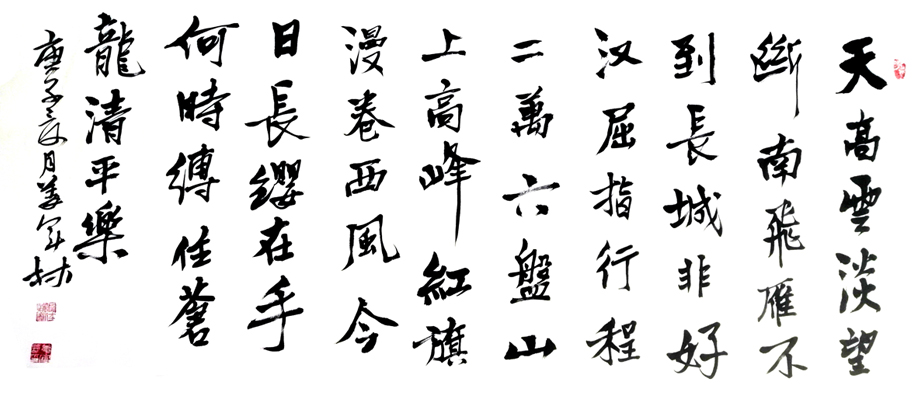 天高雲淡望
斷南飛雁不
到長城非好
汉屈指行程
二萬六盤山
上高峰紅旗
漫卷西風今
日長纓在手
何時縛住蒼
龍清平樂
庚子夏月姜